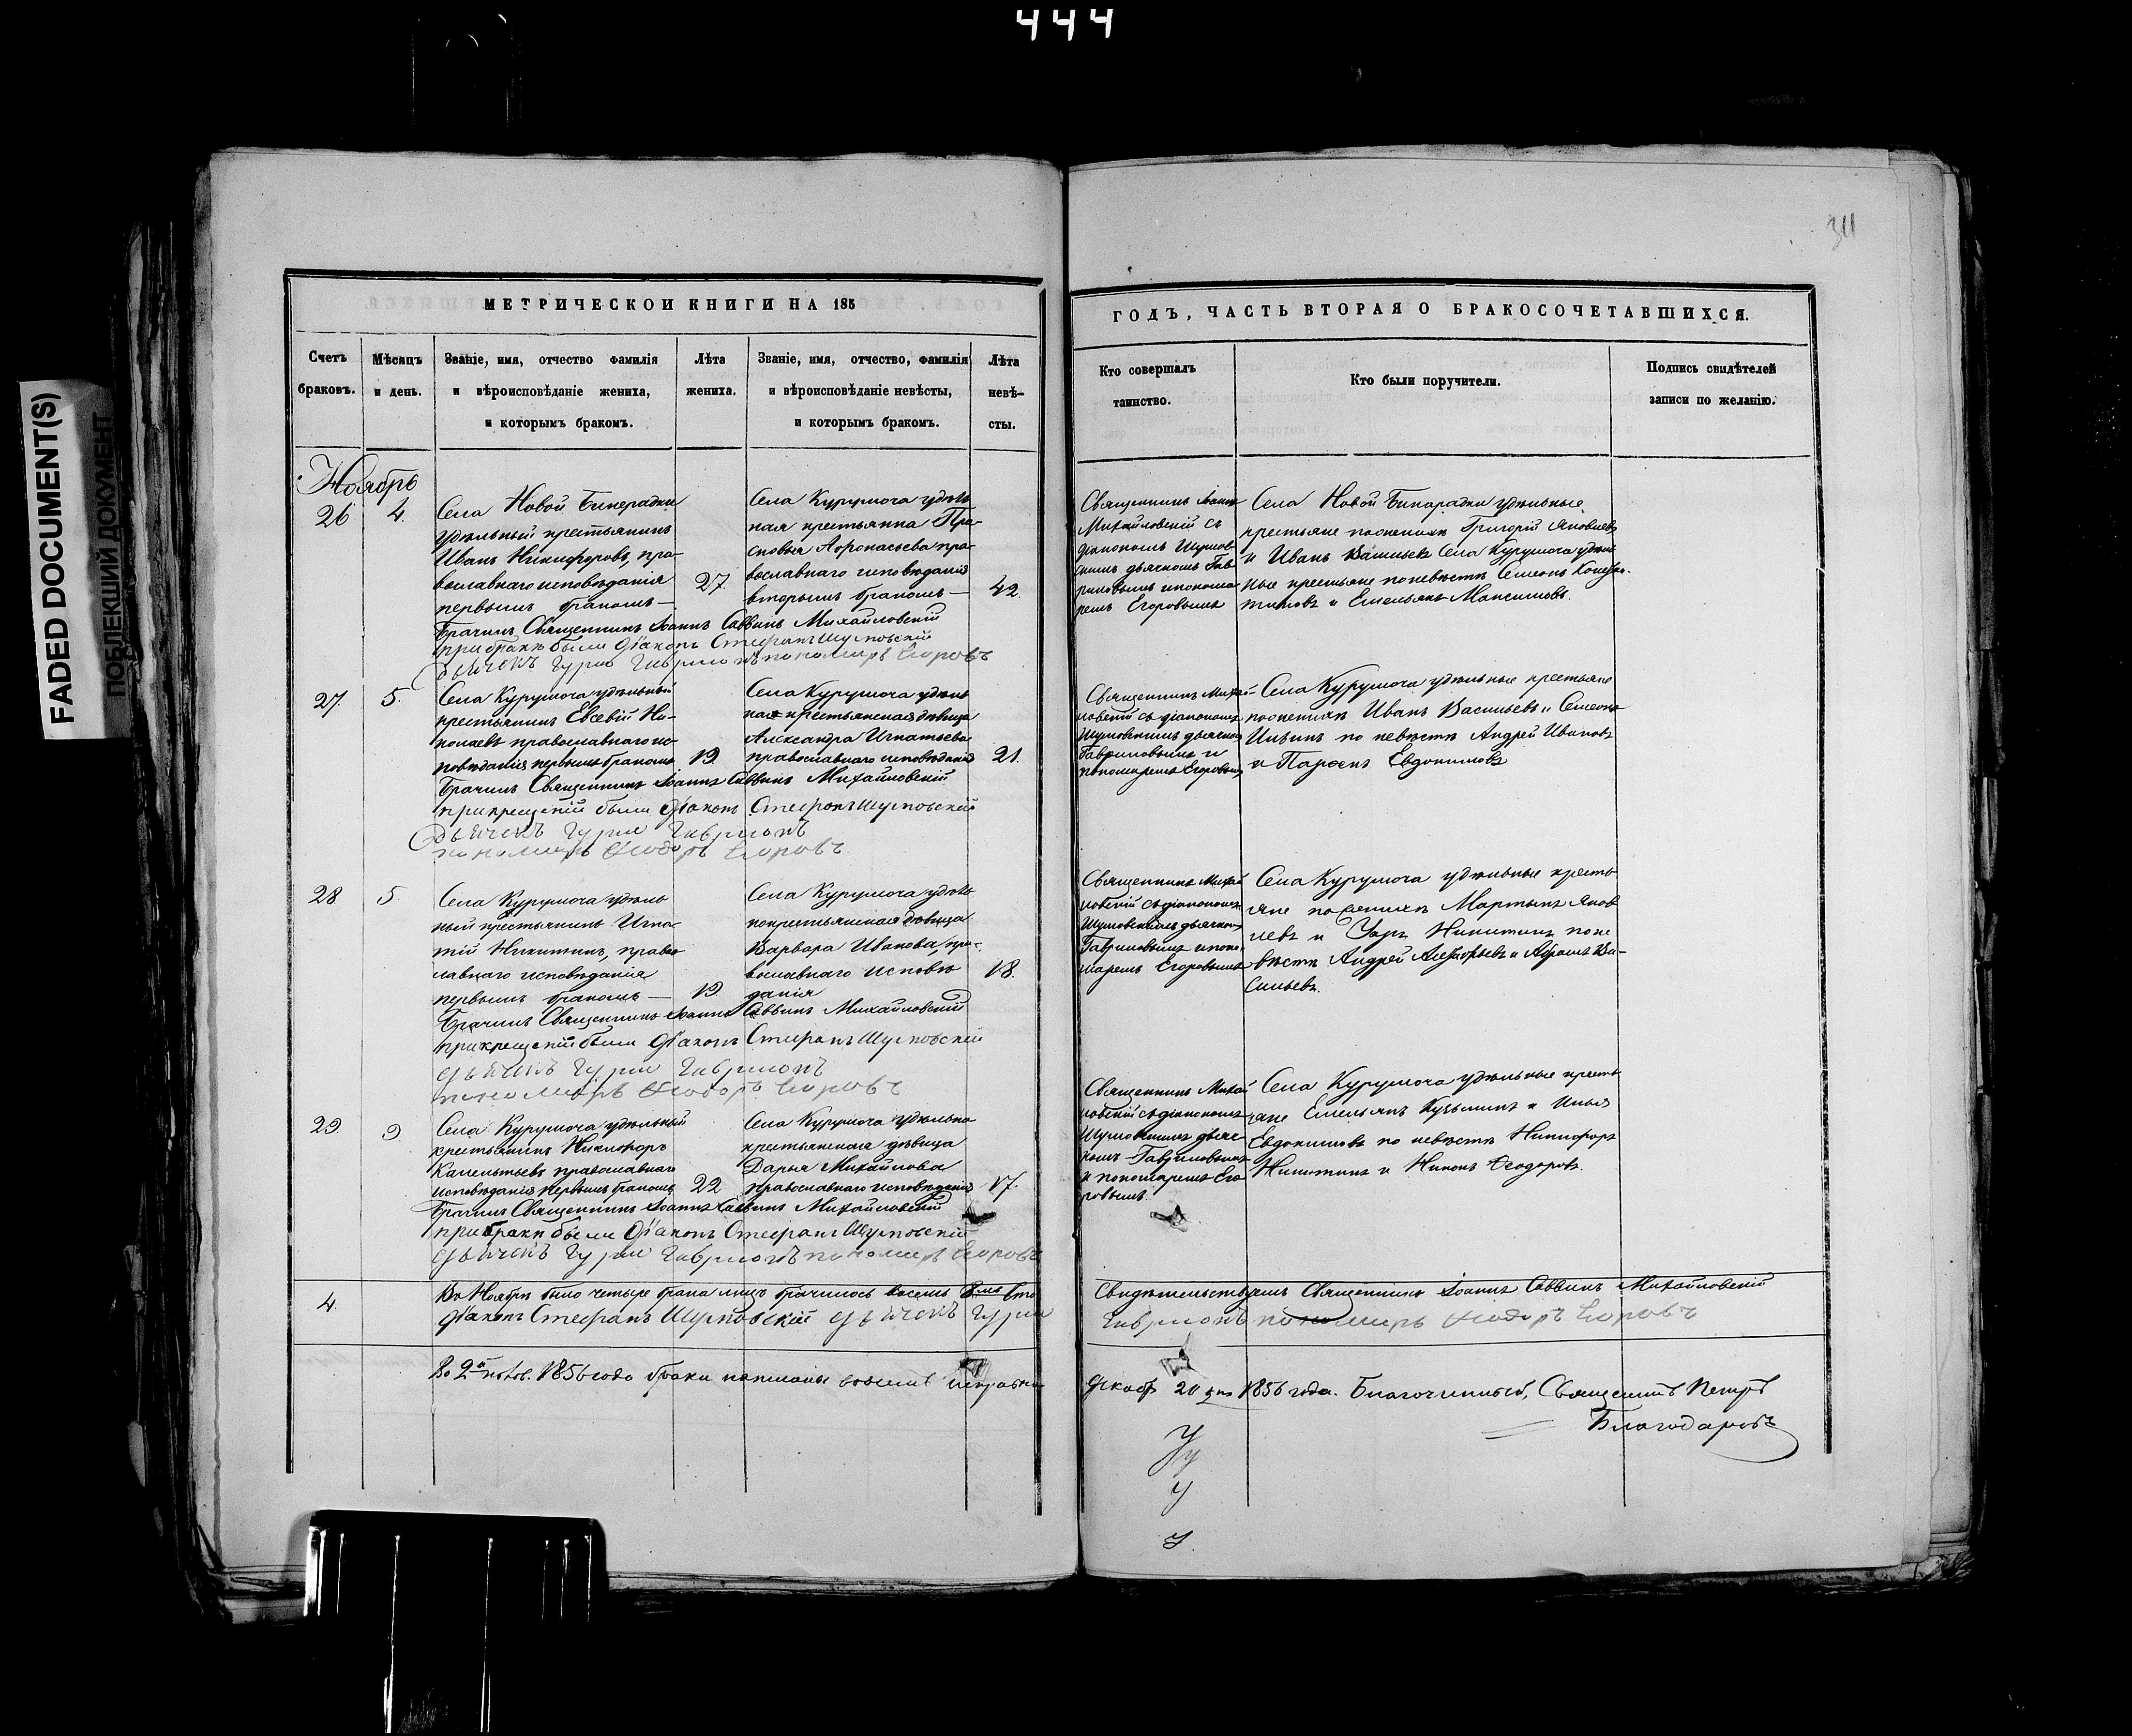 444
FADED DOCUMENT(S)
ПОБЛЕКШИЙ ДОКУМЕНТ
311
МЕТРИЧЕСКОЙ КНИГИ НА 185
Счетъ браковъ.
Мѣсяцъ и день.
Званіе, имя, отчество фамилія
и вѣроисповѣданіе жениха,
и которымъ бракомъ.
Лѣта жениха.
Званіе, имя, отчество, фамилія
и вѣроисповѣданіе невѣсты,
и которымъ бракомъ.
Лѣта невѣ-
сты.
ГОДЪ, ЧАСТЬ ВТОРАЯ О БРАКОСОЧЕТАВШИХСЯ.
Кто совершалъ
таинство.
Кто были поручители.
Подпись свидѣтелей
записи по желанію.
Ноябрь
26
4.
Села Новой Бинерадки
удѣльный крестьянинъ
Иванъ Никифоровъ, пра-
вославнаго исповѣданія
первымъ бракомъ—
27.
Села Курумоча удѣль
ная крестьянка Пра-
сковья Афонасьева пра-
вославнаго исповѣданія
вторымъ бракомъ—
42.
Священникъ Іоаннъ
Михайловскій съ
діакономъ Шумов-
скимъ дьячкомъ Гав-
риловымъ и понома-
ремъ Егоровымъ
Села Новой Бинарадки удѣльные
крестьяне по женихѣ Григорій Яковлевъ
и Иванъ Васильевъ Села Курумоча удѣль
ные крестьяне по невѣстѣ Семенъ Конста-
тиновъ и Емельянъ Максимовъ.
Брачилъ Священникъ Іоаннъ Саввинъ Михайловскій
при бракѣ были Діаконъ Стефанъ Шумовскій
Дьячекъ Гурій Гавриловъ пономарь Егоровъ
27.
5.
Села Курумоча удѣльный
крестьянинъ Евсевій Ни-
колаевъ православнаго ис-
повѣданія первымъ бракомъ
19.
Села Курумоча удѣль
ная крестьянская дѣвица
Александра Игнатьева
православнаго исповѣданія
21.
Священникъ Михай-
ловскій съ діакономъ
Шумовскимъ дьячкомъ
Гавриловымъ и
пономаремъ Егоровымъ
Села Курумоча удѣльные крестьяне
по женихѣ Иванъ Васильевъ и Семенъ
Ильинъ по невѣстѣ Андрей Ивановъ
и Парфенъ Евдокимовъ
Брачилъ Священникъ Іоаннъ Саввинъ Михайловскій
при крещеніи были Діаконъ Стефанъ Шумовскій
Дьячекъ Гурій Гавриловъ
пономарь Ѳеодоръ Егоровъ
28
5.
Села Курумоча удѣль
ный крестьянинъ Игна-
тій Никитинъ, право
славнаго исповѣданія
первымъ бракомъ—
19.
Села Курумоча удѣль
но крестьянская дѣвица
Варвара Иванова, пра-
вославнаго исповѣ
данія
18.
Священникъ Михай
ловскій съ діакономъ
Шумовскимъ дьячкомъ
Гавриловымъ и поно-
маремъ Егоровымъ
Села Курумоча удѣльные кресть
яне по женихѣ Мартынъ Яков
левъ и Уаръ Никитинъ по не
вѣстѣ Андрей и Абрамъ Ва-
сильевъ.
Брачилъ Священникъ Іоаннъ Саввинъ Михайловскій
при крещеніи были Діаконъ Стефанъ Шумовскій
дьячекъ Гурій Гавриловъ
пономарь Ѳеодоръ Егоровъ
29.
9.
Села Курумоча удѣльный
крестьянинъ Никифоръ
православнаго
исповѣданія первымъ бракомъ
22
Села Курумоча удѣльно
крестьянская дѣвица
Дарья Михайлова
православнаго исповѣданія
17.
Священникъ Михай
ловскій съ діакономъ
Шумовскимъ дьяч-
комъ Гавриловымъ
и пономаремъ Его
ровымъ.
Села Курумоча удѣльные кресть
яне Емельянъ Кузьминъ и Илья
Евдокимовъ по невѣстѣ Никифоръ
Никитинъ и Никонъ Ѳеодоровъ.
Брачилъ Священникъ Іоаннъ Саввинъ Михайловскій
при бракѣ были Діаконъ Стефанъ Шумовскій
дьячекъ Гурій Гавриловъ пономарь Егоровъ
4.
Въ Ноябрѣ было четыре брака лицъ брачилось восемь
Свидѣтельствуемъ Священникъ Іоаннъ Саввинъ Михайловскій
Діаконъ Стефанъ Шумовскій дьячекъ Гурій
Гавриловъ пономарь Ѳеодоръ Егоровъ
Во 2й полов. 1856 года браки написаны исправно
Декабр 20 дня 1856 года. Благочинный, Священникъ Петръ
Благодаровъ